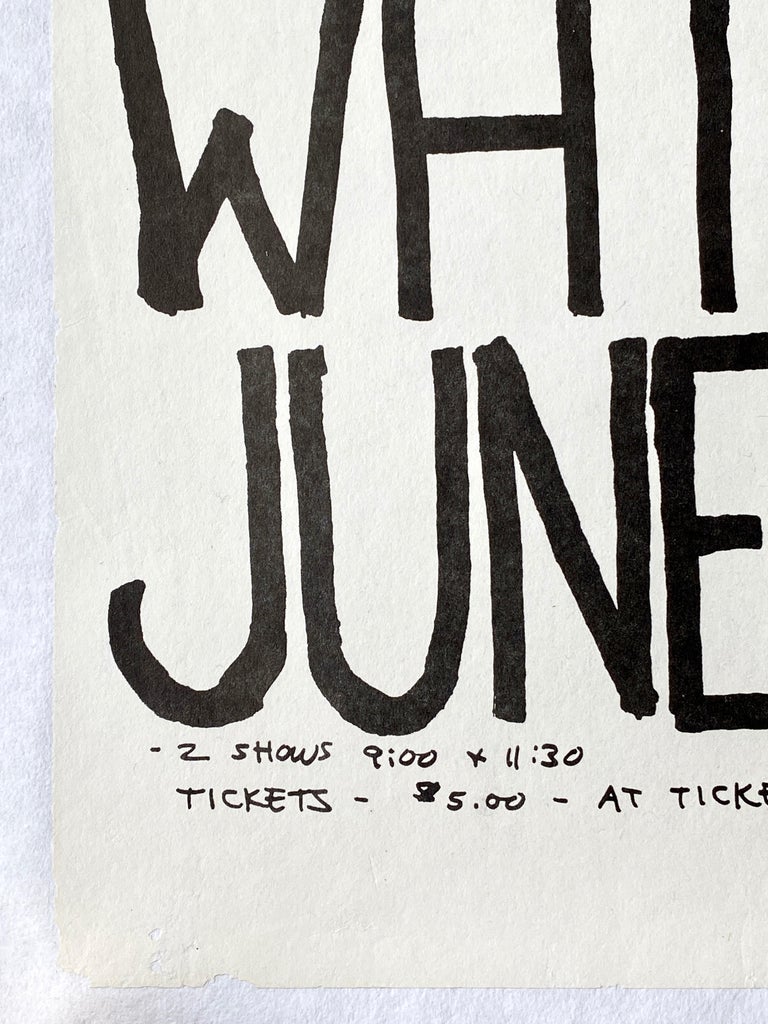 WHI
JUNE
- 2 SHOWS 9:00 + 11:30
TICKETS - $5.00 - AT TICKE